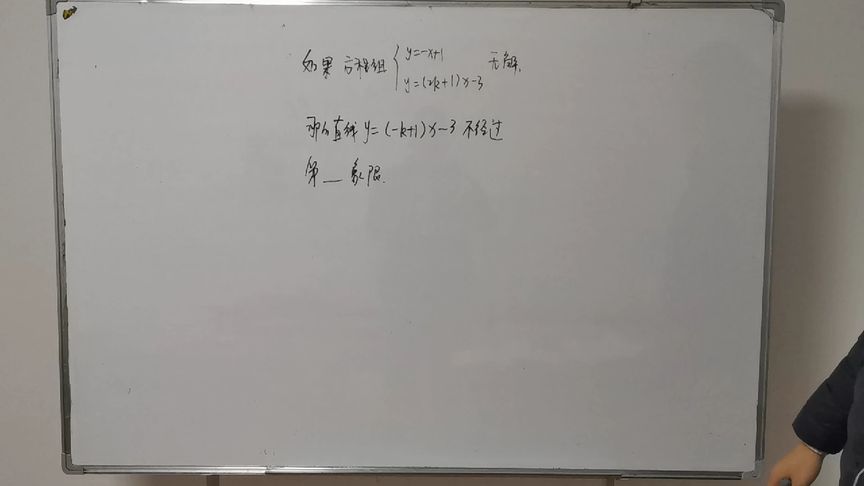 如果 方程组 { y=-x+1 无解,
y=(2k+1)x-3
那么直线 y=(-k+1)x-3 不经过
第__象限.